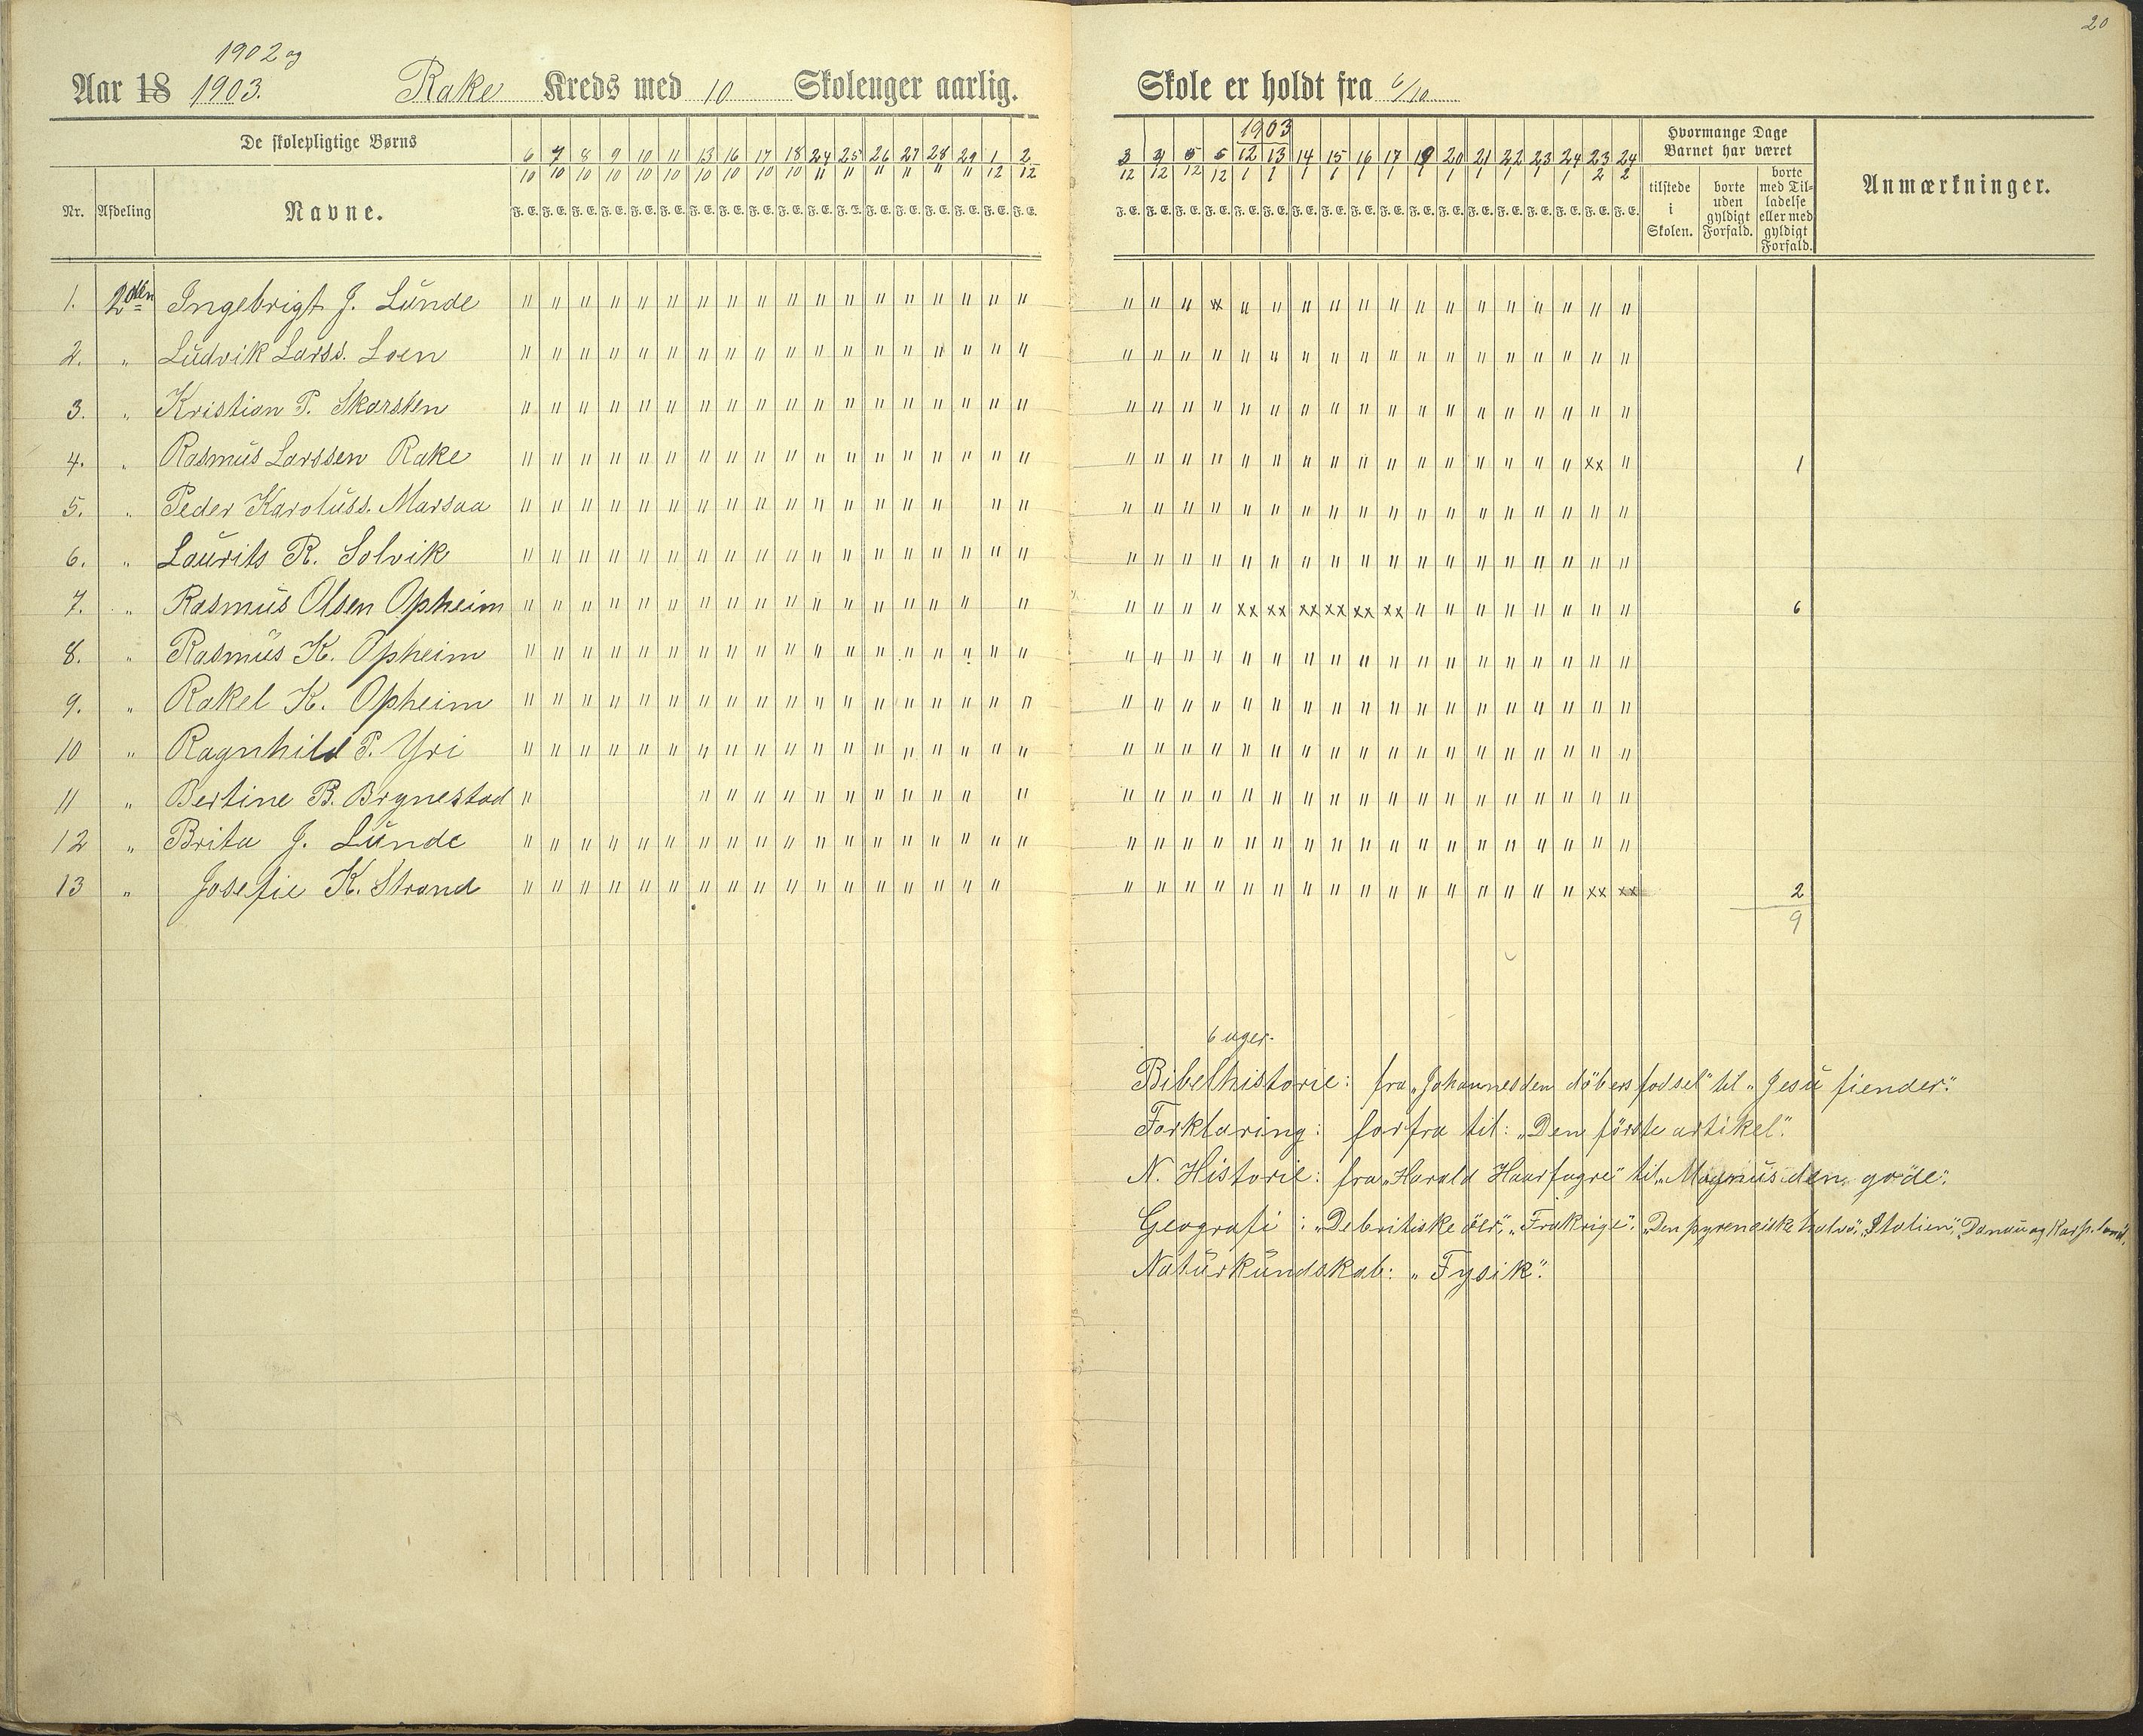 20
1902 og
Aar 18 1903. Rake Kreds med 10 Skoleuger aarlig. Skole er holdt fra 6/10
De skolepligtige Børns
Nr. Afdeling Navne.
6/10 7/10 8/10 9/10 10/10 11/10 13/10 16/10 17/10 18/10 24/11 25/11 26/11 27/11 28/11 29/11 1/12 2/12
F. E. F. E. F. E. F. E. F. E. F. E. F. E. F. E. F. E. F. E. F. E. F. E. F. E. F. E. F. E. F. E. F. E. F. E.
1903
3/12 4/12 5/12 12/1 13/1 14/1 15/1 16/1 17/1 19/1 20/1 21/1 22/1 23/1 24/1 23/2 24/2
F. E. F. E. F. E. F. E. F. E. F. E. F. E. F. E. F. E. F. E. F. E. F. E. F. E. F. E. F. E. F. E. F. E. F. E.
Hvormange Dage
Barnet har været
tilstede
i
Skolen.
borte
uden
gyldigt
Forfald.
borte
med Til-
ladelse
eller med
gyldigt
Forfald.
Anmærkninger.
1. 2den Ingebrigt J. Lunde " " " " " " " " " " " " " " " " " " " " " x " " " " " " " " " " " " " "
2. " Ludvik Larss. Loen " " " " " " " " " " " " " " " " " " " " " " " " " " " " " " " " " " " "
3. " Kristian P. Skarsten " " " " " " " " " " " " " " " " " " " " " " " " " " " " " " " " " " " "
4. " Rasmus Larssen Rake " " " " " " " " " " " " " " " " " " " " " " " " " " " " " " " " " " xx " 1
5. " Peder Karoluss. Marsaa " " " " " " " " " " " " " " " " " " " " " " " " " " " " " " " " " " "
6. " Laurits R. Solvik " " " " " " " " " " " " " " " " " " " " " " " " " " " " " " " " " " " "
7. " Rasmus Olsen Opheim " " " " " " " " " " " " " " " " " " " " " xx xx xx xx xx xx " " " " " " " " 6
8. " Rasmus K. Opheim " " " " " " " " " " " " " " " " " " " " " " " " " " " " " " " " " " " "
9. " Rakel K. Opheim " " " " " " " " " " " " " " " " " " " " " " " " " " " " " " " " " " " "
10 " Ragnhild P. Yri " " " " " " " " " " " " " " " " " " " " " " " " " " " " " " " " " " " "
11 " Bertine B. Brynestad " " " " " " " " " " " " " " " " " " " " " " " " " " " " " "
12 " Brita J. Lunde " " " " " " " " " " " " " " " " " " " " " " " " " " " " " " " " " " " "
13 " Josefie K. Strand " " " " " " " " " " " " " " " " " " " " " " " " " " " " " " " " " xx xx 2
9
6 uger.
Bibelhistorie: fra "Johannes den döbers fodsel" til "Jesu fiender".
Forklaring: forfra til: "Den förste artikel".
N. Historie: fra "Harald Haarfagre" til "Magnus den gode".
Geografi: "De britiske öer", "Frakrige", "Den pyrenæiske halvö", "Italien", "Donau og Karp. land".
Naturkundskab: "Fysik".